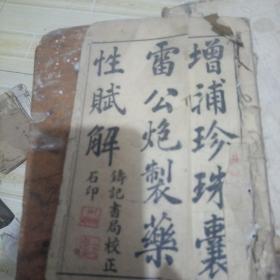 增補珍珠囊
雷公炮製藥
性賦解
鑄記書局校正
石印